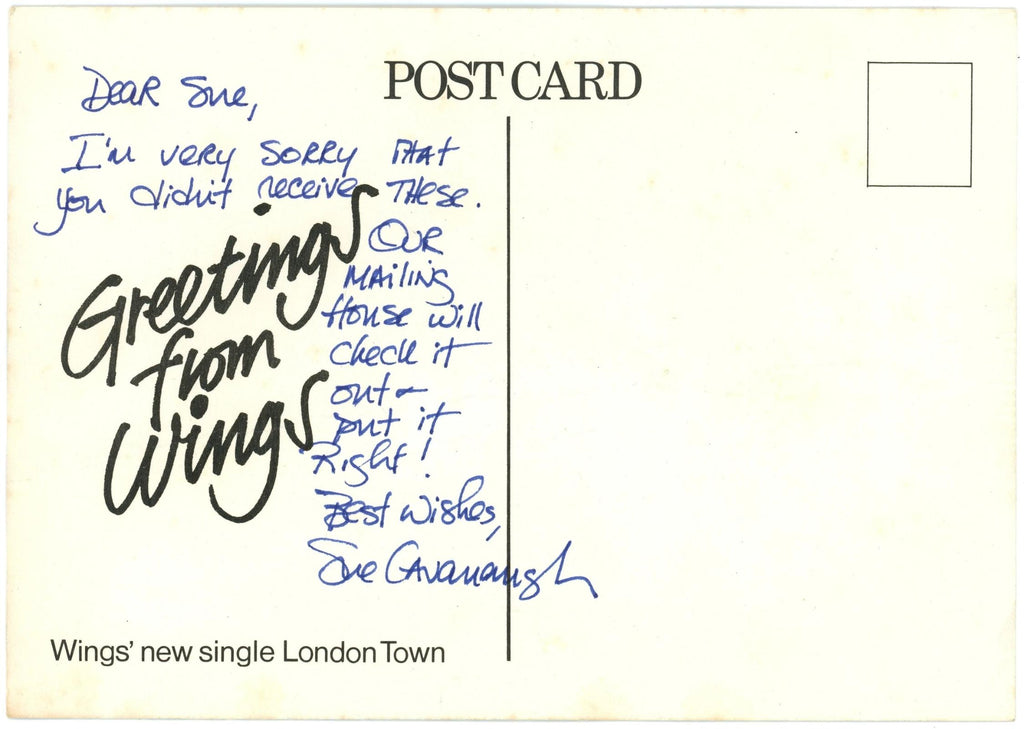 POST CARD
Dear Sue,
I'm very sorry that
you didn't receive these.
Our
mailing
House will
check it
out &
put it
Right!
Best Wishes,
Sue Cavanaugh
Greetings
from
Wings
Wings' new single London Town